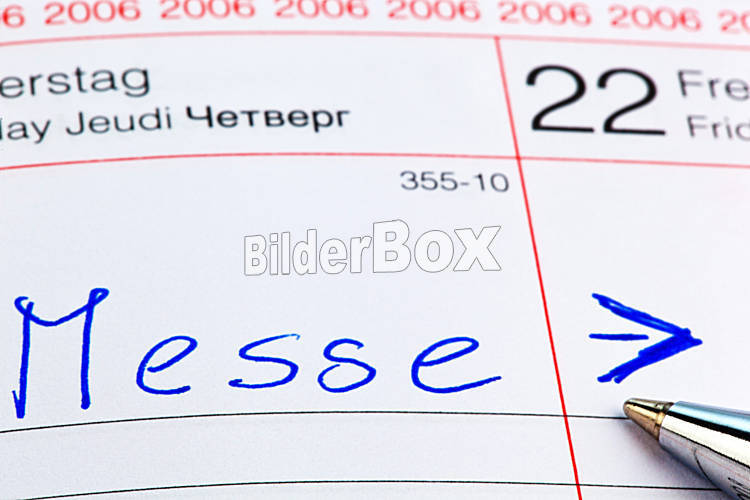 6 2006 2006 2006 2006 2006 2006 2006 2006 20
erstag
lay Jeudi Четверг
22 Fre
Frid
355-10
BilderBox
Messe >